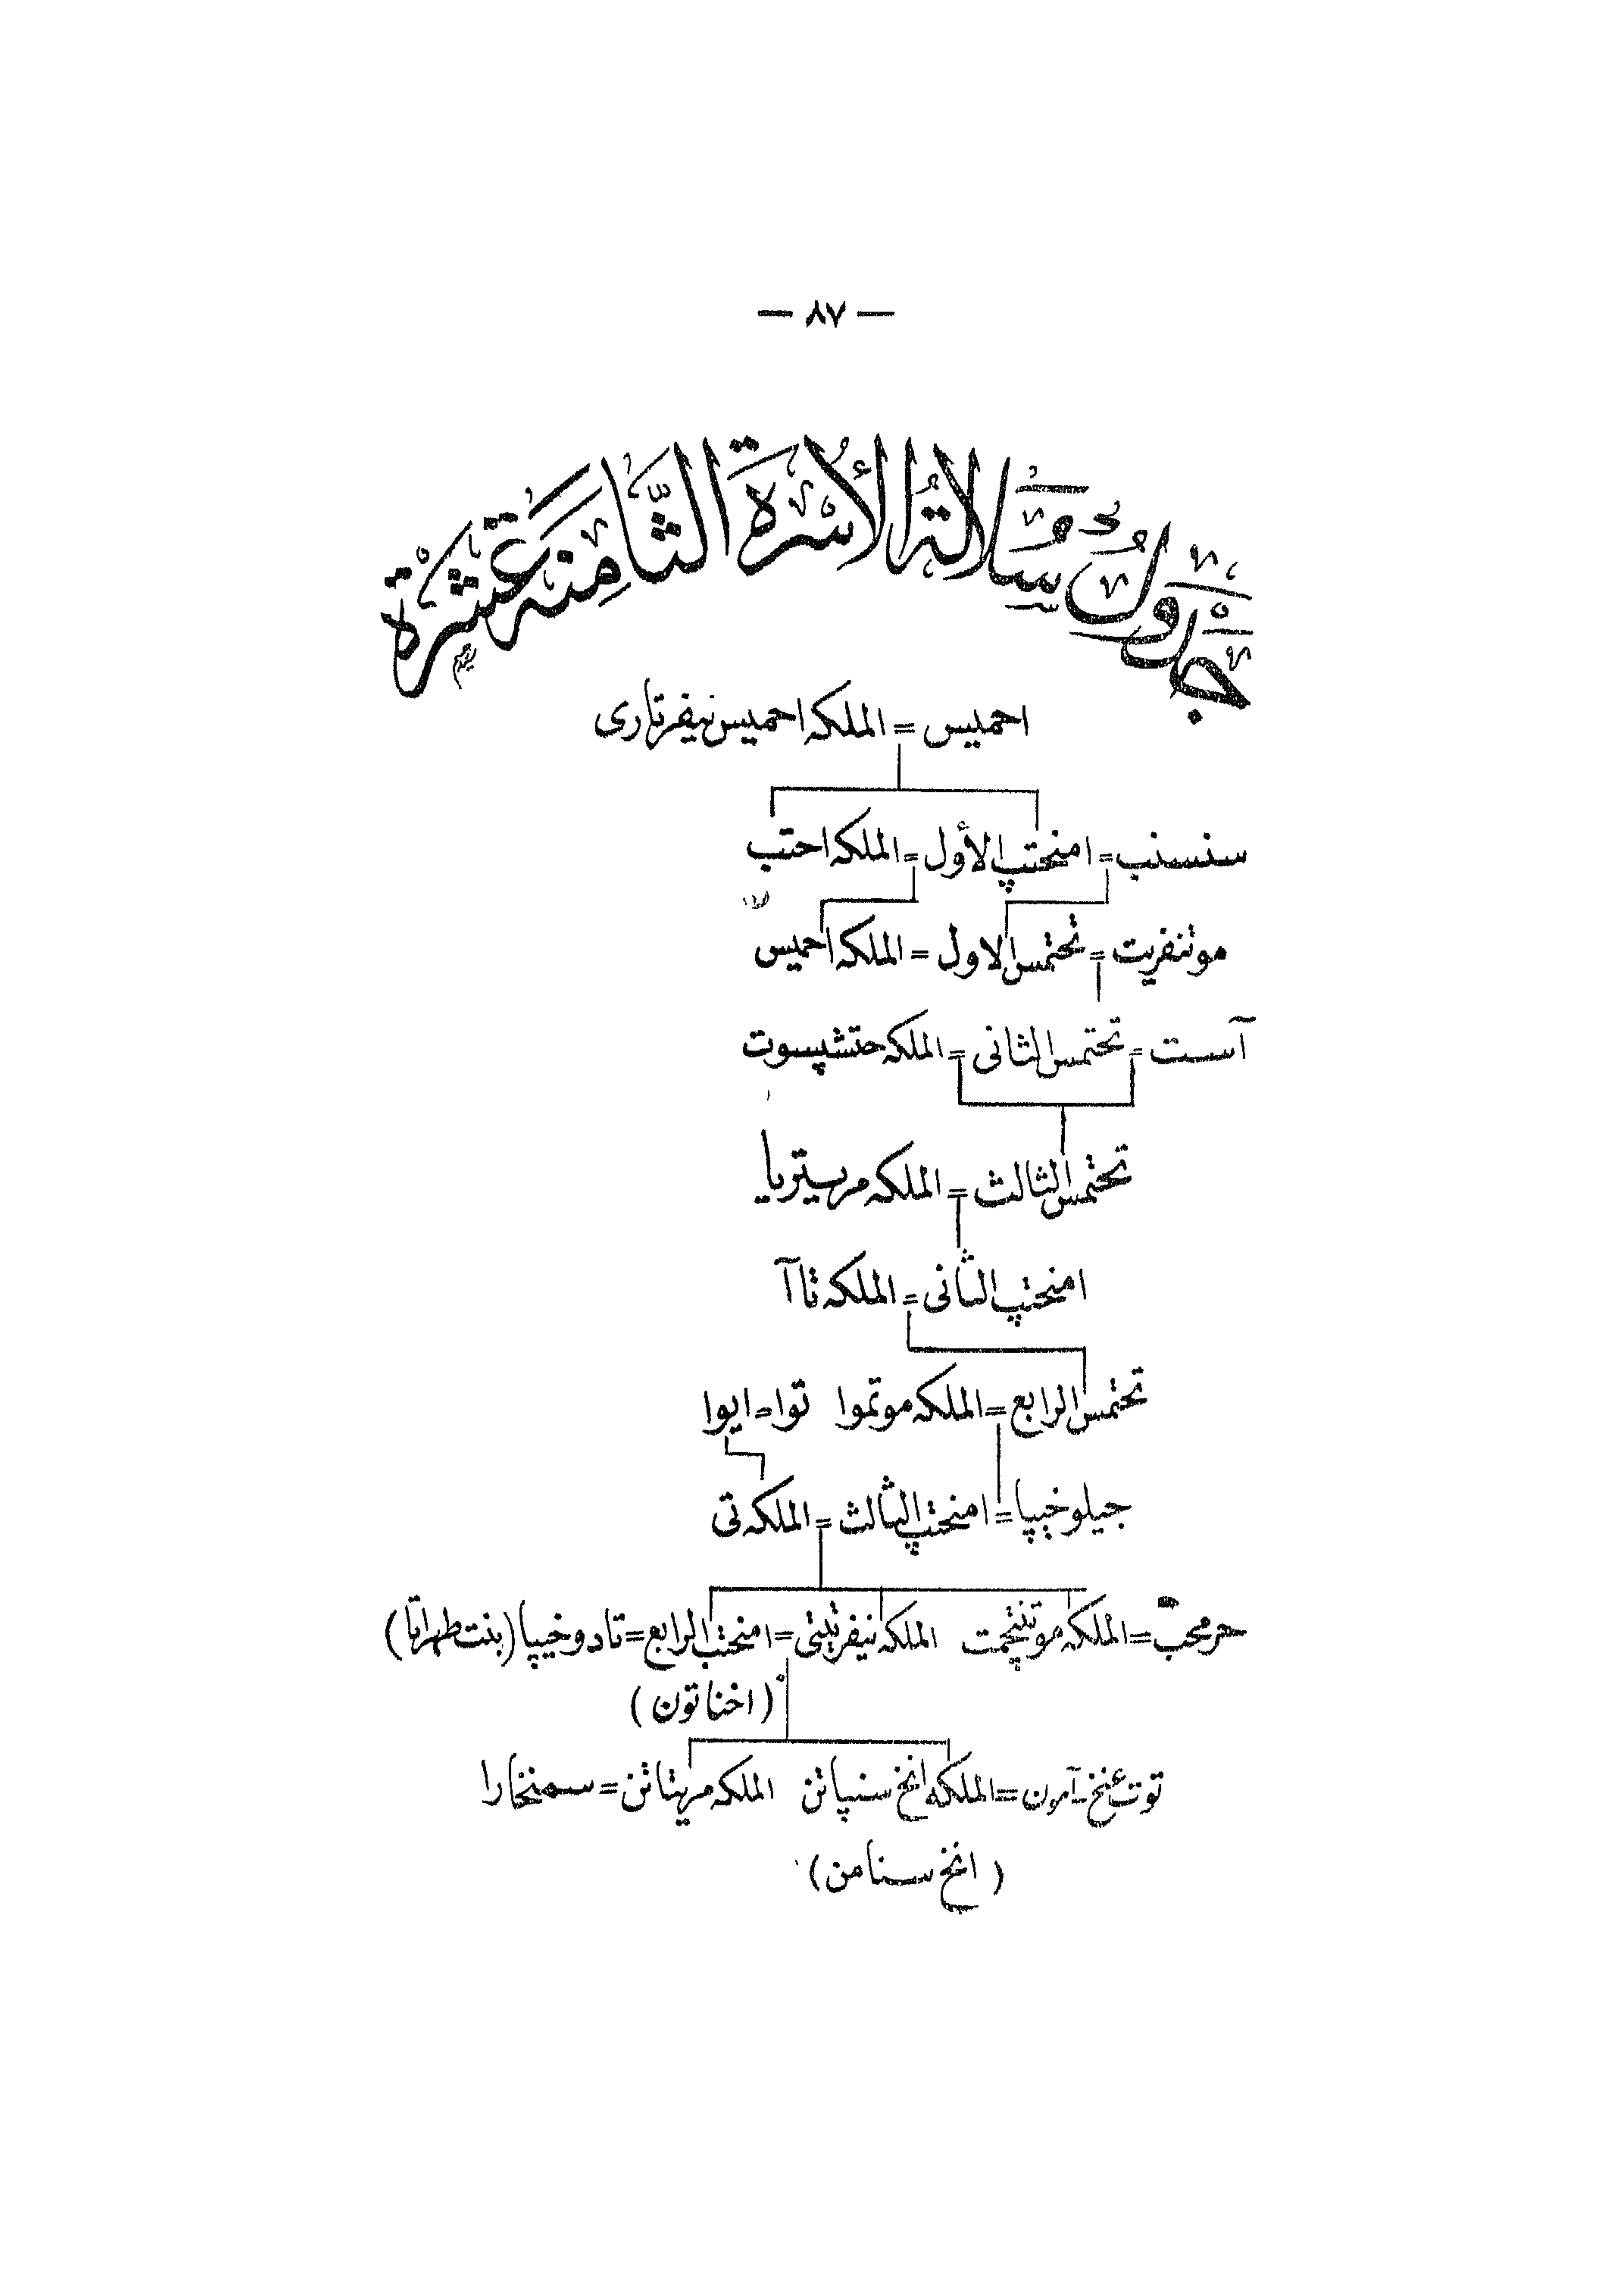 — ٨٧ —
جَدْوَلُ سُلالَةُ الأُسْرَةِ الثَّامِنَه عَشْرَة
احميس = الملكه احميس نيفرتارى
سنسنب = امنحتپ الأول = الملكه احتب
موتنفريت = تحتمس الاول = الملكه احميس
آست = تحتمس الثانى = الملكه حتشپسوت
تحتمس الثالث = الملكه مريتريا
امنحتپ الثانى = الملكه تاآ
تحتمس الرابع = الملكه موتموا توا = ايوا
جيلوخيپا = امنحتپ الثالث = الملكه تى
حرمحب = الملكه موتنتجمت الملكه نيفرتيتى = امنحتب الرابع = تادوخيپا (بنت طهراتا)
(اخناتون)
توت عنخ آمون = الملكه انخ سنپاتن الملكه مريتاتن = سمنخارا
(انخ سنامن)